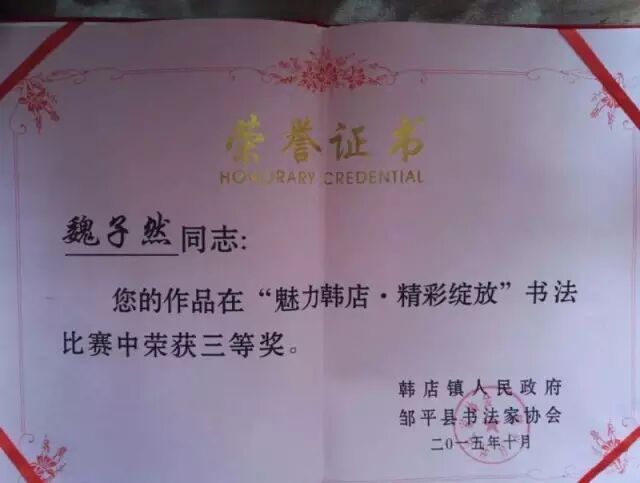 荣誉证书
HONORARY CREDENTIAL
魏子然同志:
您的作品在“魅力韩店·精彩绽放”书法
比赛中荣获三等奖。
韩店镇人民政府
邹平县书法家协会
二〇一五年十月